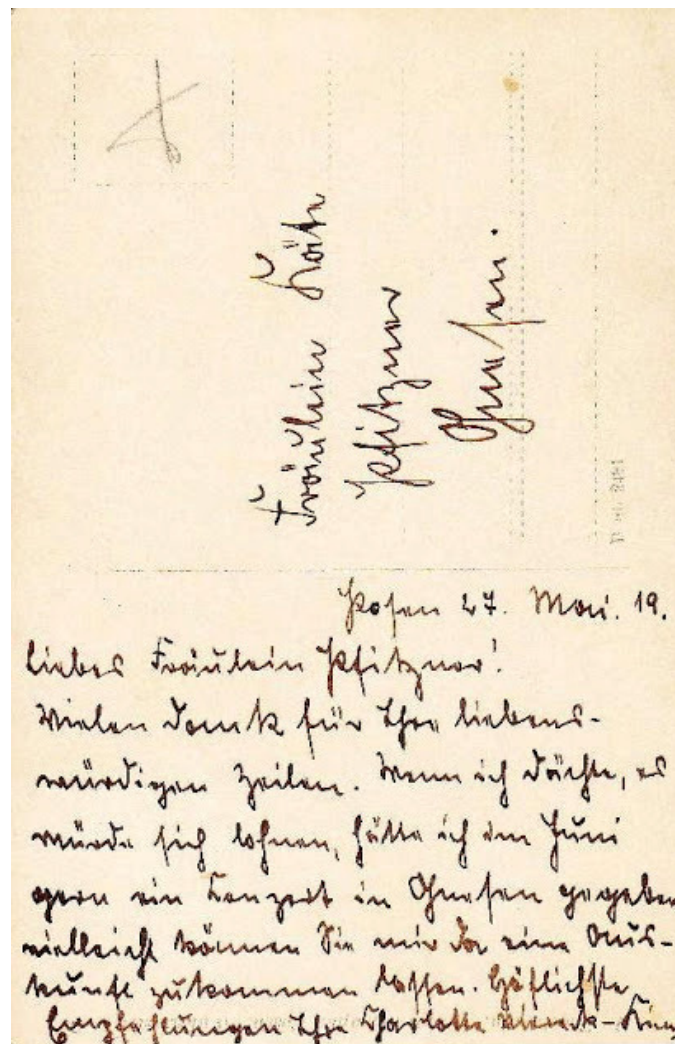 Fräulein Käte
Pfitzner
Gnesen.
Posen 27. Mai. 19.
Liebes Fräulein Pfitzner!
Vielen Dank für Ihre liebens-
würdigen Zeilen. Wenn ich dächte, es
würde sich lohnen, hätte ich im Juni
gern ein Konzert in Gnesen gegeben
vielleicht können Sie mir da eine Aus-
kunft zukommen lassen. Höflichste
Empfehlungen Ihre Charlotte